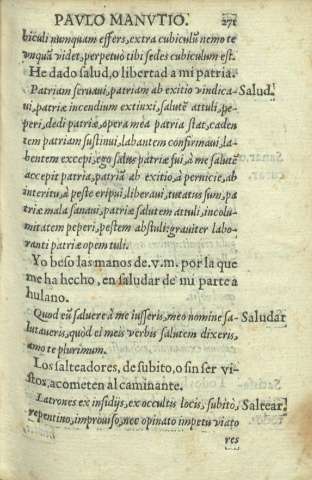 PAVLO MANVTIO. 271
biculi nunquam effers, extra cubiculũ nemo te
vnquã videt, perpetuò tibi sedes cubiculum est.
He dado salud, o libertad a mi patria.
Patriam seruaui, patriam ab exitio vindica- Salud.
ui, patriæ incendium extinxi, salutẽ attuli, pe-
peri, dedi patriæ, opera mea patria stat, caden
tem patriam sustinui, labantem confirmaui, la-
bentem excepi, ego salus patriæ fui, à me salutẽ
accepit patria, patriã ab exitio, à pernicie, ab
interitu, à peste eripui, liberaui, tutatus sum, pa
triæ mala sanaui, patriæ salutem attuli, incolu-
mitatem peperi, pestem abstuli: grauiter labo-
ranti patriæ opem tuli.
Yo beso las manos de.v.m. por la que
me ha hecho, en saludar de mi parte a
hulano.
Quod eũ saluere à me iusseris, meo nomine sa- Saludar
lutaueris, quòd ei meis verbis salutem dixeris,
amo te plurimum.
Los salteadores, de subito, o sin ser vi-
stos, acometen al caminante.
Latrones ex insidijs, ex occultis locis, subitò, Saltear.
repentino, improuiso, nec opinato impetu viato
res